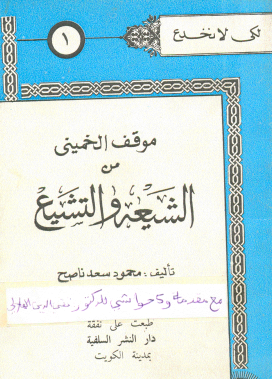 لكى لا نخدع
١
موقف الخمينى
من
الشيعة والتشيع
تأليف : محمود سعد ناصح
مع مقدمة و حواشي للدكتور تقي الدين الهلالي
طبعت على نفقة
دار النشر السلفية
بمدينة الكويت